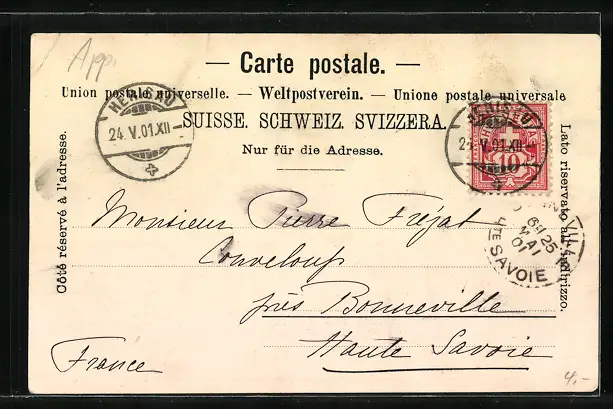 App.
— Carte postale. —
Union postale universelle. — Weltpostverein. — Unione postale universale
SUISSE. SCHWEIZ. SVIZZERA.
Nur für die Adresse.
Côté réservé à l'adresse.
Lato riservato all'indirizzo.
HERISAU
24.V.01.XII
HERISAU
24.V.01.XII
HELVETIA
10
6H 25
MAI
01
HTE SAVOIE
Monsieur Pierre Fréjat
Couveloup
près Bonneville
Haute Savoie
France
4.-